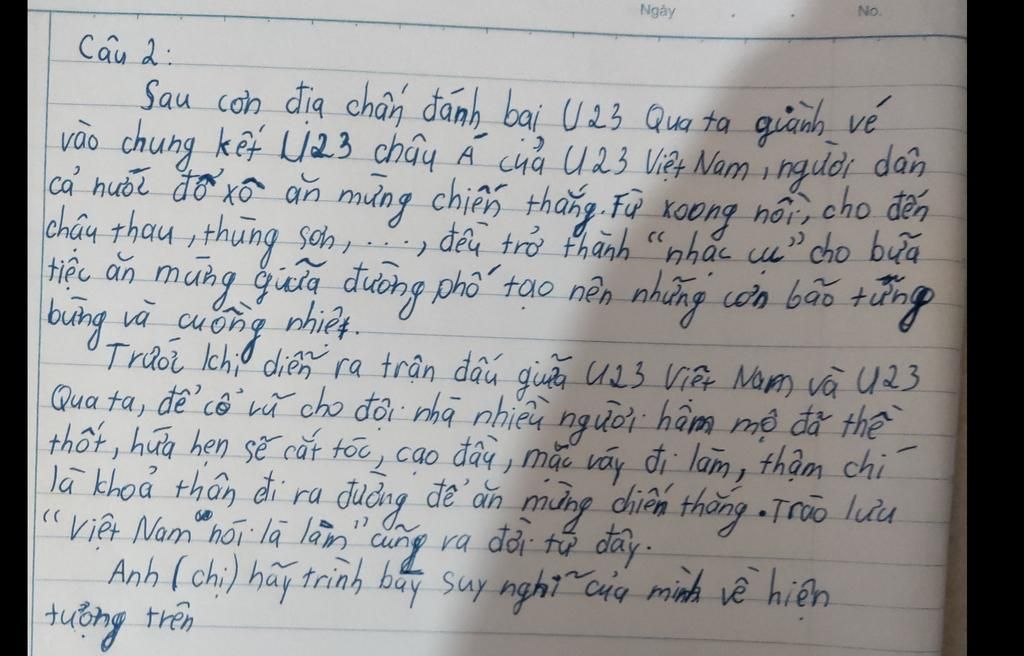 Ngày . . No.
Câu 2:
Sau cơn địa chấn đánh bại U23 Qua ta giành vé
vào chung kết U23 châu Á của U23 Việt Nam, người dân
cả nước đổ xô ăn mừng chiến thắng. Từ xoong nồi, cho đến
chậu thau, thùng sơn, ..., đều trở thành "nhạc cụ" cho bữa
tiệc ăn mừng giữa đường phố tạo nên những cơn bão tưng
bừng và cuồng nhiệt.
Trước khi diễn ra trận đấu giữa U23 Việt Nam và U23
Qua ta, để cổ vũ cho đội nhà nhiều người hâm mộ đã thề
thốt, hứa hẹn sẽ cắt tóc, cạo đầu, mặc váy đi làm, thậm chí
là khoả thân đi ra đường để ăn mừng chiến thắng. Trào lưu
"Việt Nam nói là làm" cũng ra đời từ đây.
Anh (chị) hãy trình bày suy nghĩ của mình về hiện
tượng trên